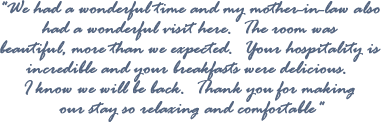 "We had a wonderful time and my mother-in-law also
had a wonderful visit here. The room was
beautiful, more than we expected. Your hospitality is
incredible and your breakfasts were delicious.
I know we will be back. Thank you for making
our stay so relaxing and comfortable"